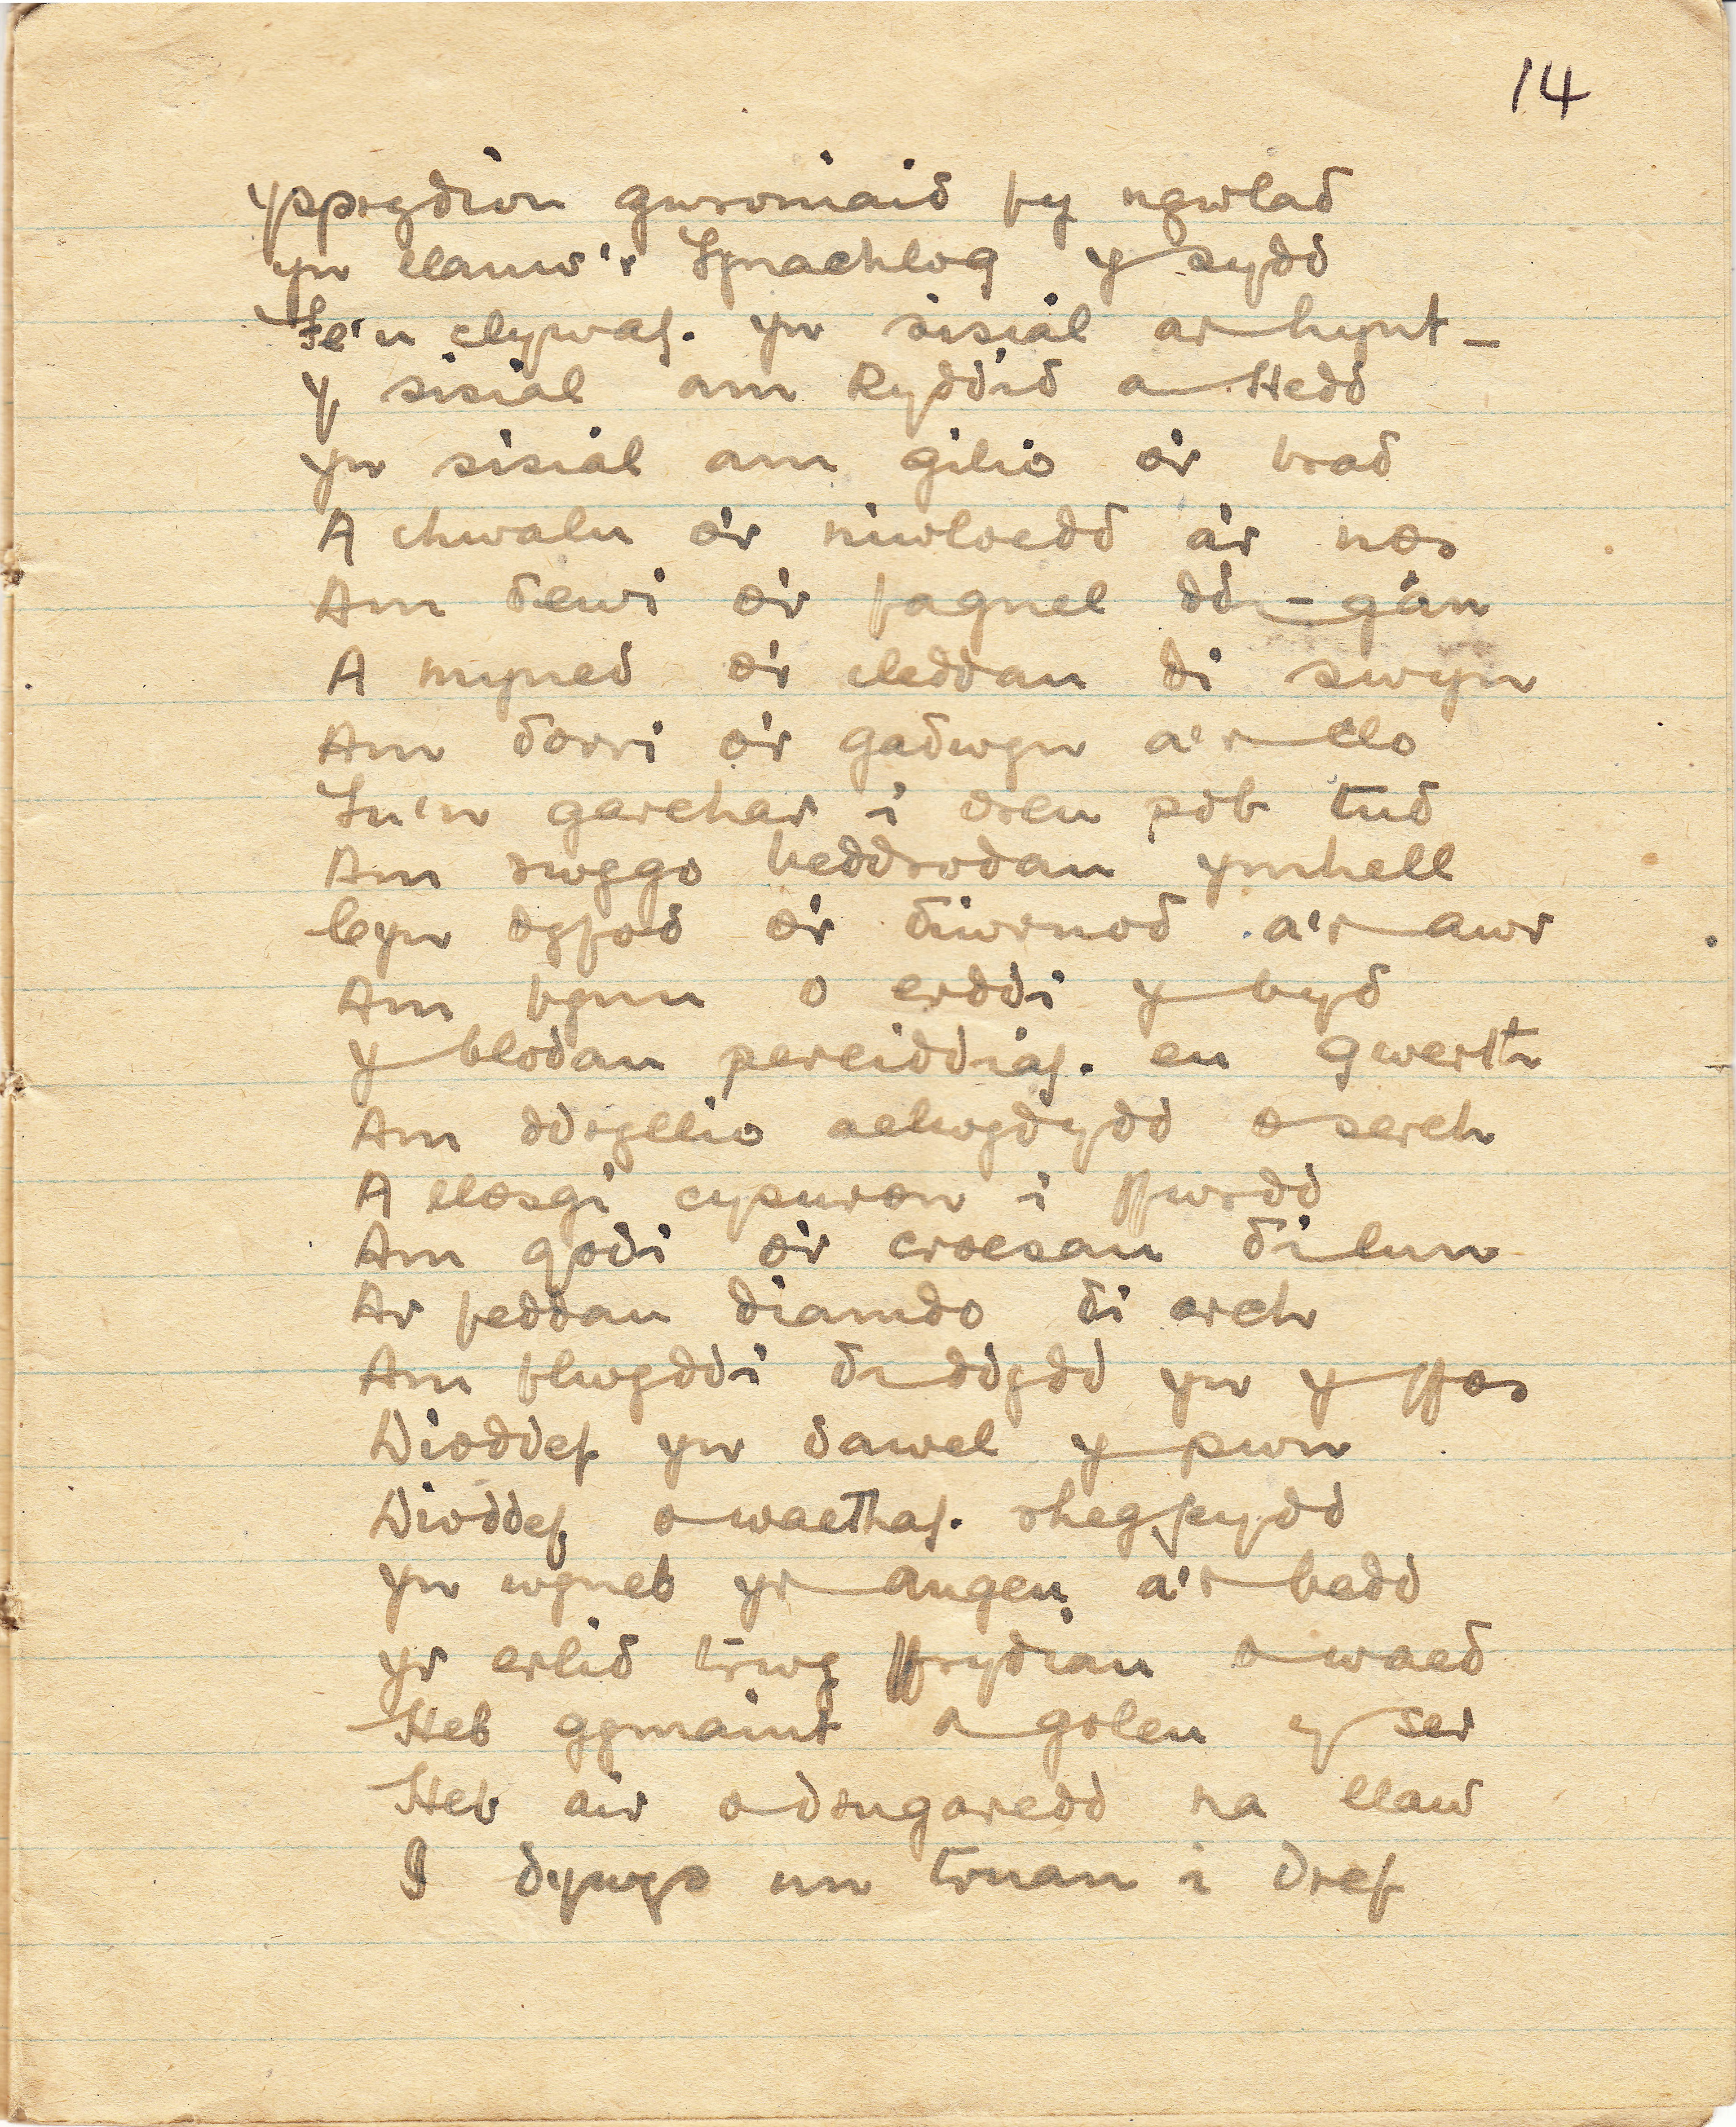 14
Ysprydion gwroniaid fy ngwlad
Yn llanw'r Fynachlog y sydd
Fe'u clywaf. yn sisial ar hynt –
Y sisial am Ryddid a Hedd
Yn sisial am gilio o'r brad
A chwalu o'r niwloedd a'r nos
Am dewi o'r fagnel ddi-gân
A myned o'r cleddau di swyn
Am dorri o'r gadwyn a'r clo
Fu'n garchar i oreu pob tud
Am rwygo beddrodau ymhell
Cyn dyfod o'r diwrnod a'r awr
Am fynn o erddi y byd
Y blodau pereiddiaf. eu gwerth
Am ddryllio aelwydydd o serch
A llosgi cysuron i ffwrdd
Am godi o'r croesau di lun
Ar feddau diamdo di arch
Am flwyddi di ddydd yn y ffos
Dioddef yn dawel y pwn
Dioddef o waethaf. rhegfeydd
Yn wyneb yr angeu a'r bedd
Yr erlid trwy ffrydiau o waed
Heb gymaint a goleu y ser
Heb air o drugaredd na llaw
I dywys un truan i dref